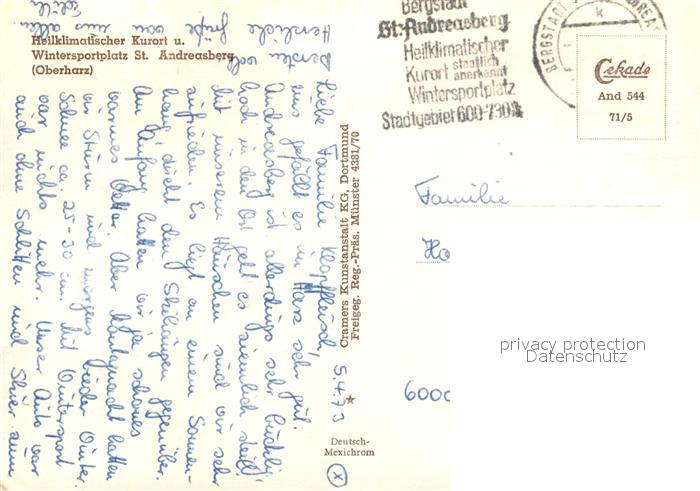 Heilklimatischer Kurort u.
Wintersportplatz St. Andreasberg
(Oberharz)
Bergstadt
St. Andreasberg
Heilklimatischer
Kurort staatlich anerkannt
Wintersportplatz
Stadtgebiet 600-730
BERGSTADT
k
Cekade
And 544
71/5
5.4.73
Liebe Familie Klopffleisch,
uns gefällt es im Harz sehr gut.
Andreasberg ist allerdings sehr
hoch in den Ort geht es ziemlich steil,
Mit unserem Häuschen sind wir sehr
zufrieden. Es liegt an einem Sonnen-
hang direkt den Skihängen gegenüber.
Am Anfang hatten wir ja schönes
warmes Wetter. Aber Montagnacht hatten
wir Sturm und morgens wieder Winter.
Schnee ca. 25-30 cm. Mit Wintersport
war nichts mehr. Unser Auto war
auch ohne Schlitten und Skier zum
Bersten voll
Herzliche Grüße von uns allen
Cramers Kunstanstalt KG, Dortmund
Freigeg. Reg.-Präs. Münster 4381/70
Deutsch-
Mexichrom
x
Familie
Ho
6000
privacy protection
Datenschutz